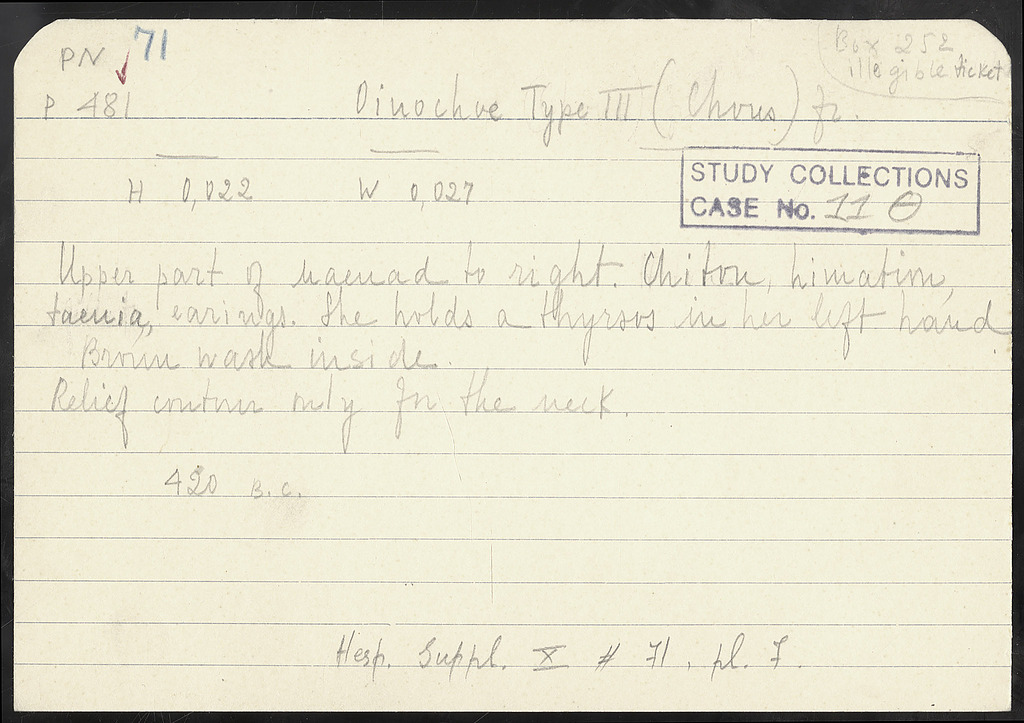 PN 71
Box 252
illegible ticket
P 481 Oinochoe Type III (Chous) fr.
H 0,022 W 0,027
STUDY COLLECTIONS
CASE No. 11 Θ
Upper part of maenad to right. Chiton, himation,
taenia, earings. She holds a thyrsos in her left hand
Brown wash inside.
Relief contour only for the neck.
420 B.C.
Hesp. Suppl. X # 71, pl. 7.